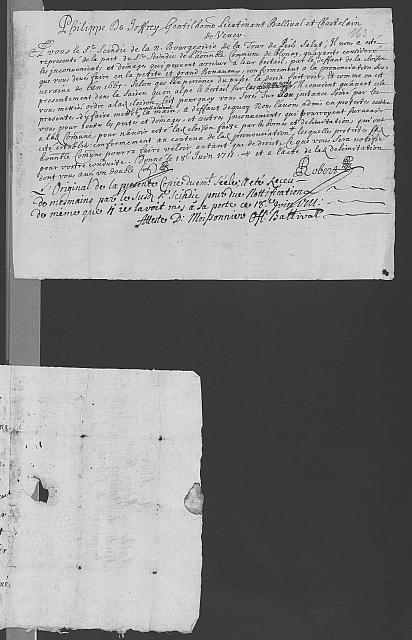 Philippe De Joffrey Gentilhomme Lieutenant Ballival et Chastelain
de Vevey
A vous le Sr. Scindic de la n. Bourgeoisie de la Tour de Peil Salut, Il nous a esté
representé de la part du Sr. Scindic de l'honble Commune de Blonay, qu'ayants consideré
les inconvenients et domages qui peuvent arriver à leur bertail, par le deffaut de la closion
que vous deues faire en la petite et grand Bonaudon, conformement à la prononciation Sou-
veraine de l'an 1661. Selon que l'experience du passé la deub fait voir, et comme on est
presentement dans la Saison qu'on alpe le bertail sur les il convient qu'avent cela
vous mettiés ordre à la closion, C'est pourquoy vous Serés Sur Son jnstance Sommé par les
presentes d'y faire mettre la main à deffaut dequoy Nous l'avons admis en protestes contre
vous pour toute les pertes et domages, et autres jnconvenients qui pourroyent survenir
à la Commune, pour n'avoir esté la closion faite par les bornes et delimitation, qui ont
esté establies conformement au contenu de la prononciation, lesquelles protestes lad.
honble Commune pourra faire veloir autant que de droit, ce que vous Sera notifié
pour votre conduite. Donné ce 18e Juin 1711. et à l'acte de lad. delimitation
dont vous aurés un double
Robert
L'Original de la presente Copie duement Seelez, a eté Receu
de mes mains par le Susd. Sr. Scindic pour due Nottification
de meme que je l'avoit mis à sa porte ce 18e Juin 1711.
Atteste D. Moissonnier Offr. Ballival